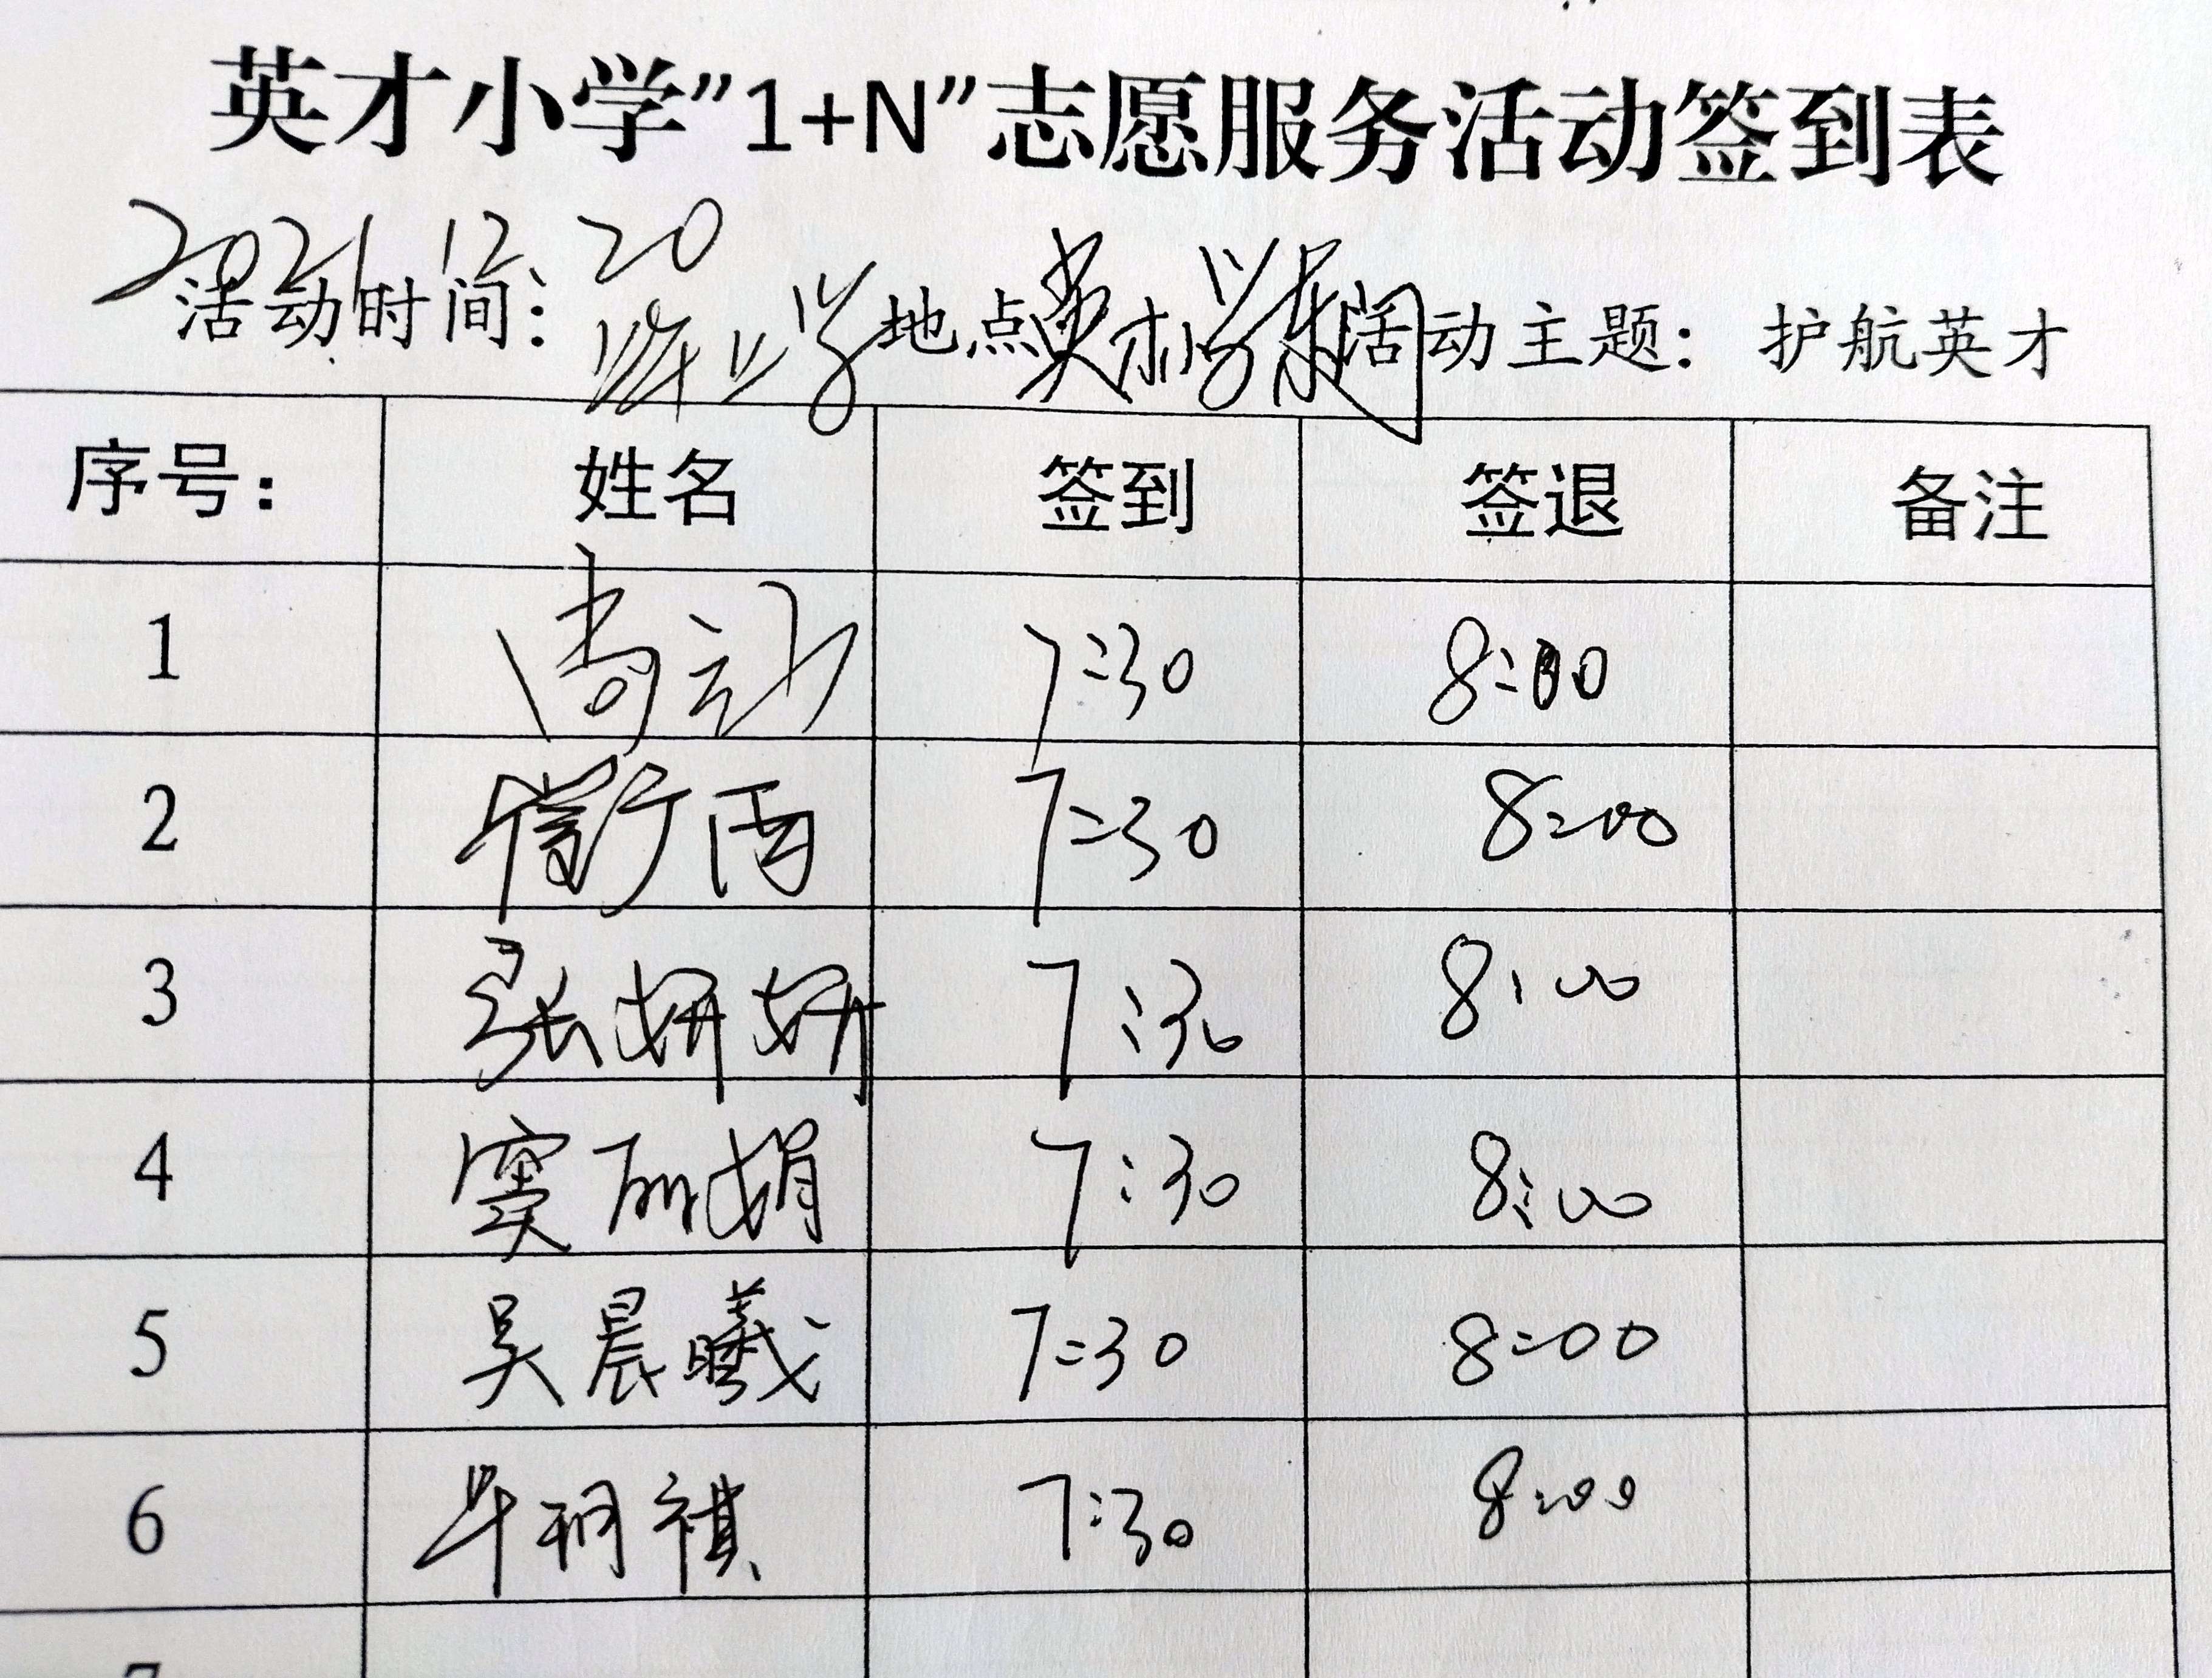 英才小学”1+N”志愿服务活动签到表
2021 12 20
活动时间： 地点 英才小学东 活动主题： 护航英才
序号： 姓名 签到 签退 备注
1 7:30 8:00
2 7:30 8:00
3 张妍妍 7:30 8:00
4 窦丽娟 7:30 8:00
5 吴晨曦 7:30 8:00
6 牟珂祺 7:30 8:00
7